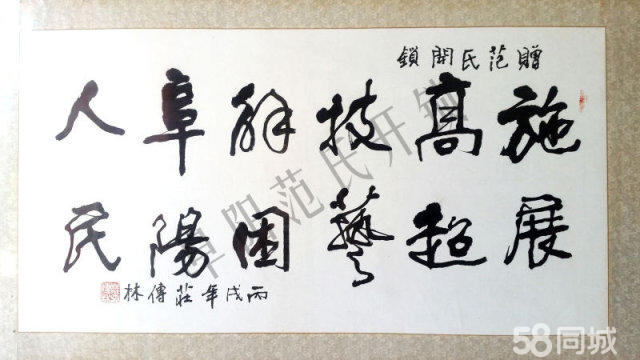 贈范氏開鎖
施展
高超
技藝
解困
阜陽
人民
丙戌年莊傳林
阜阳范氏开锁
58同城